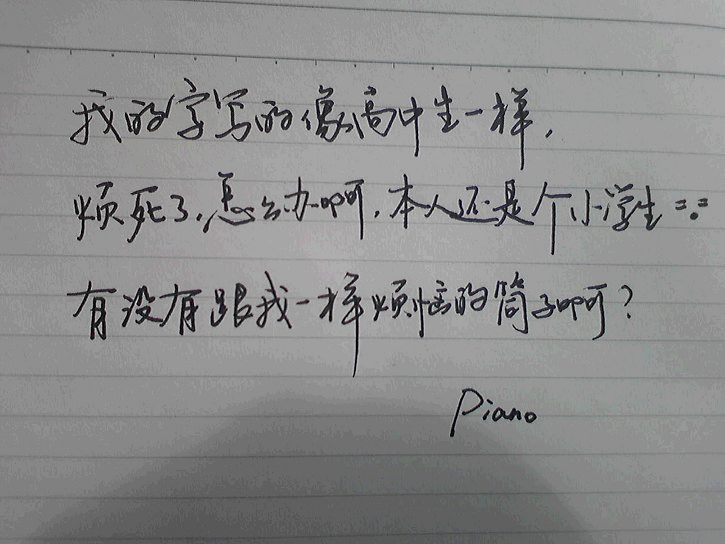 我的字写的像高中生一样,
烦死了,怎么办啊,本人还是个小学生=。=
有没有跟我一样烦恼的筒子啊?
Piano